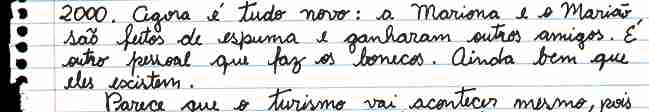 2000. Agora é tudo novo: a Mariona e o Marião
são feitos de espuma e ganharam outros amigos. É
outro pessoal que faz os bonecos. Ainda bem que
eles existem.
Parece que o turismo vai acontecer mesmo, pois